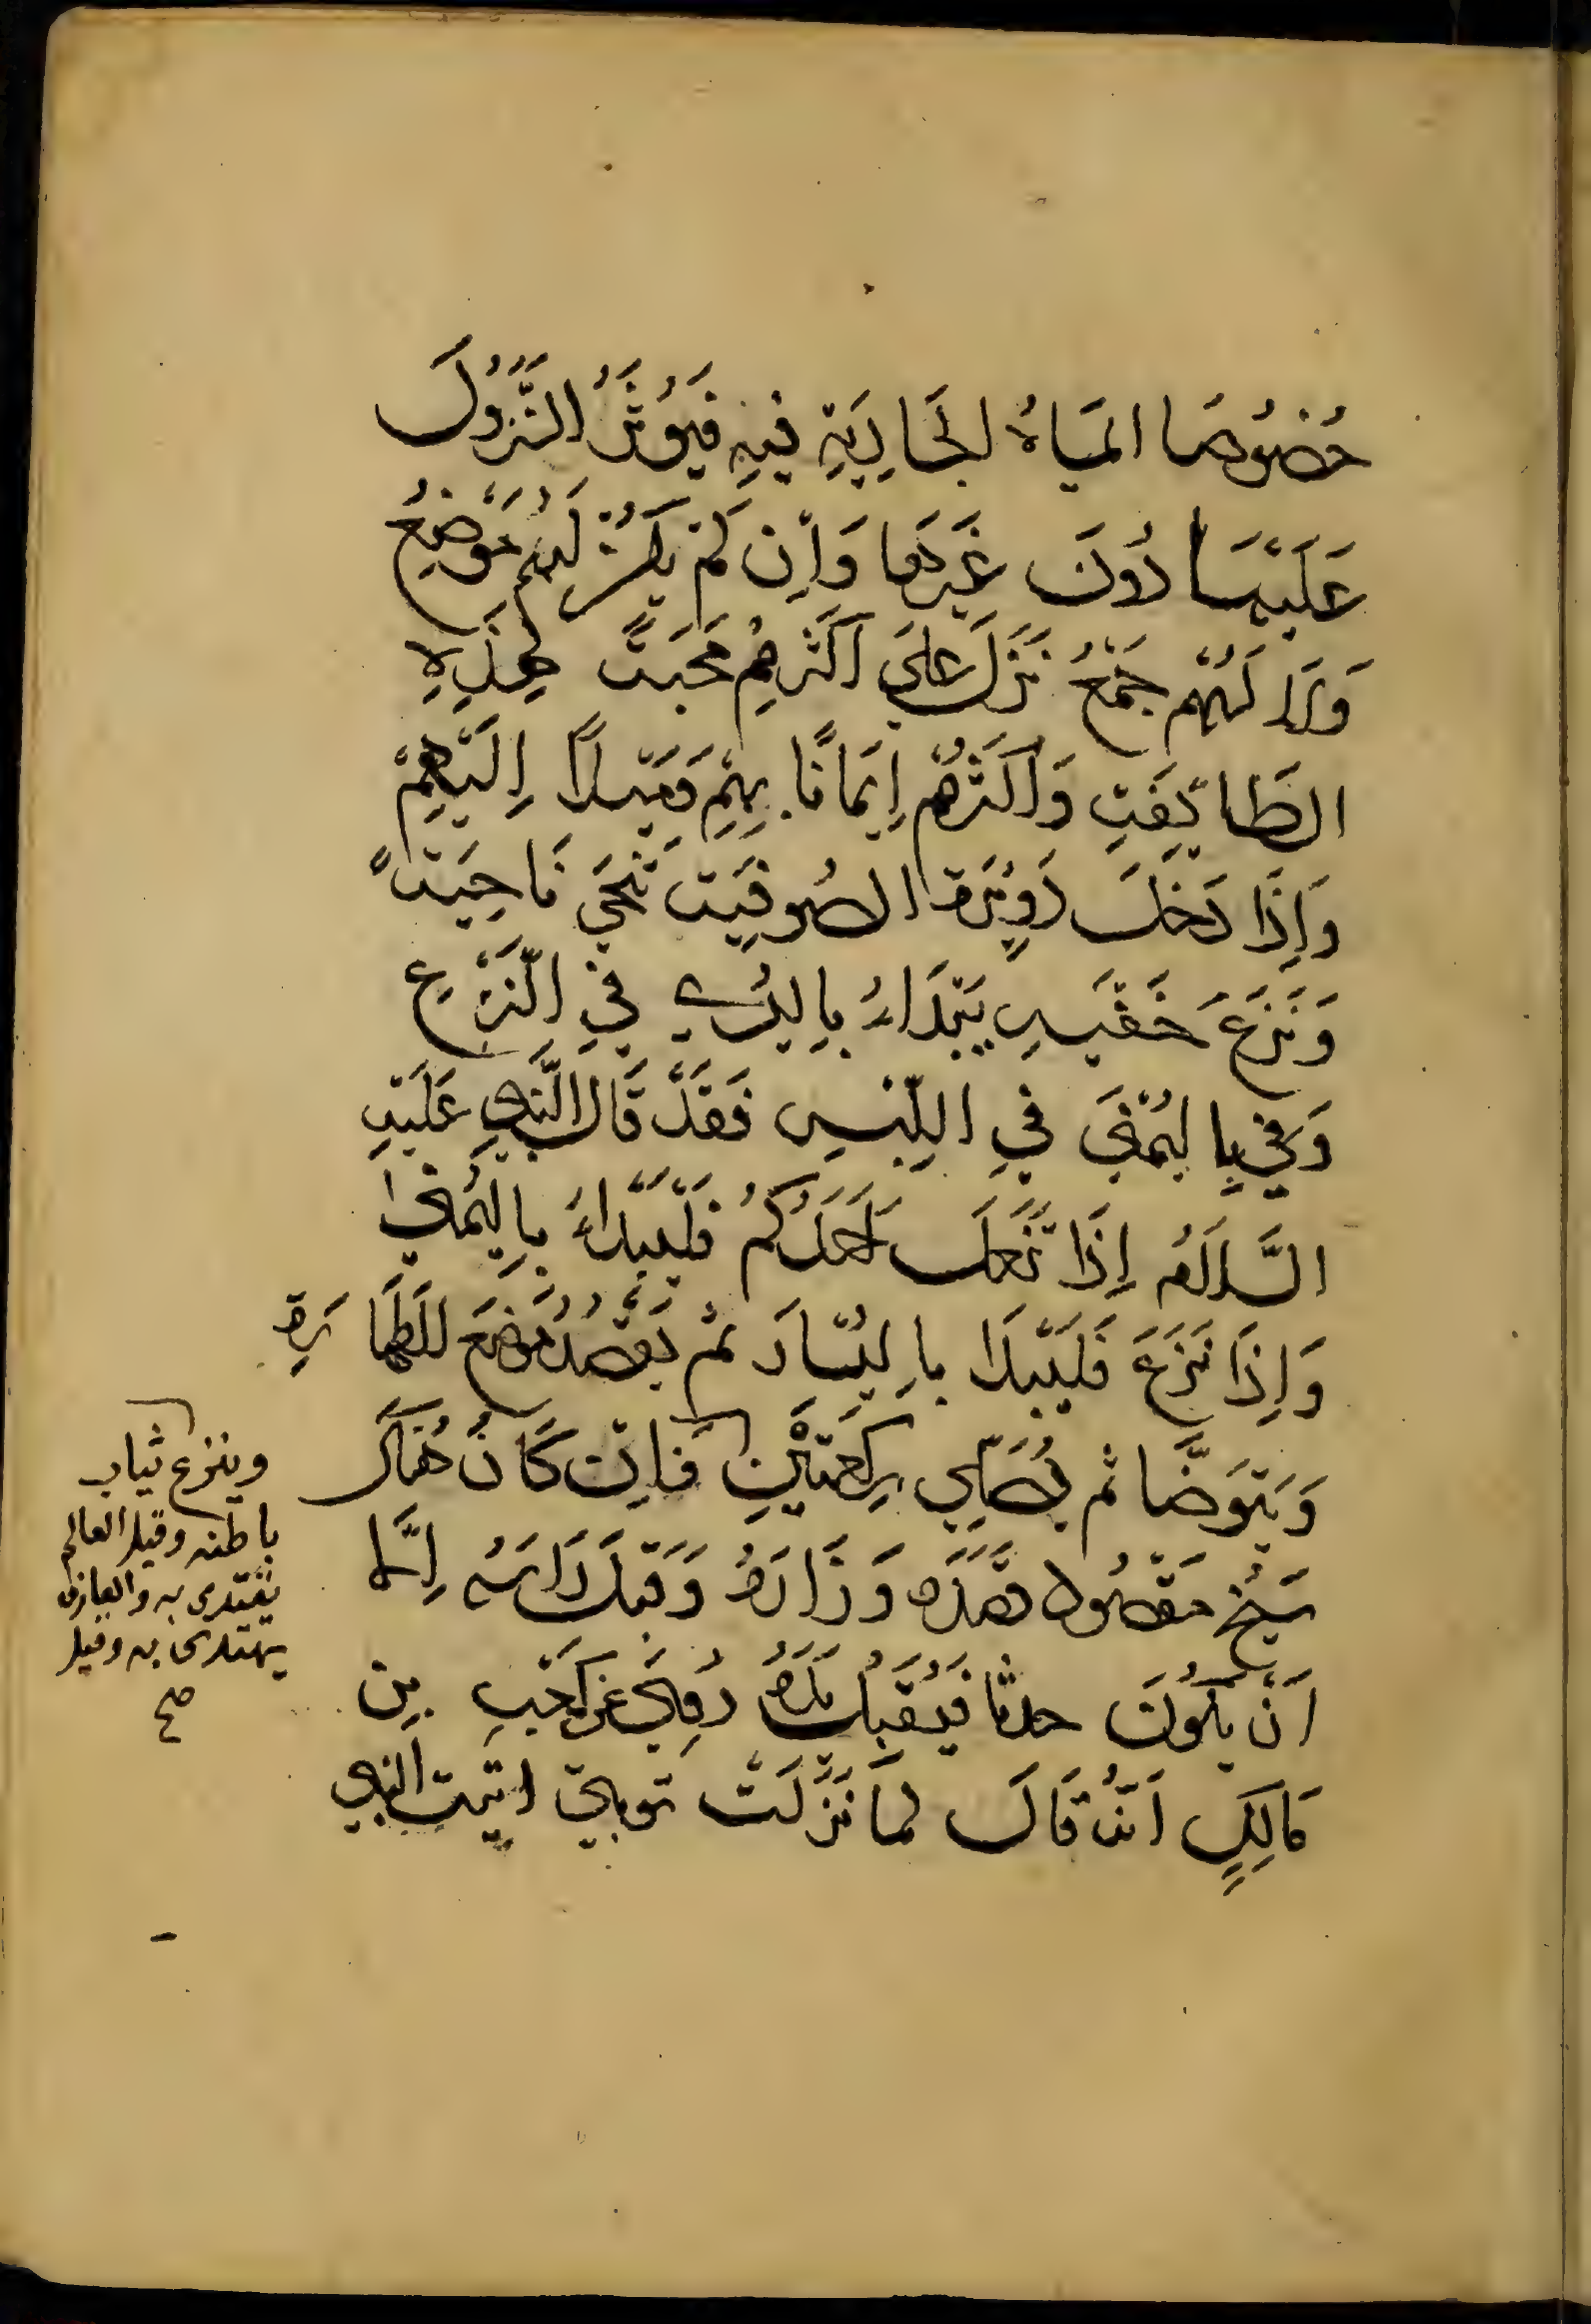 خُصُوصًا المَيَاهُ الجَارِيَةِ فِيهِ فَيُوثَرُ النُّزُولَ
عَلَيْهَا دُونَ غَيْرِهَا وَاِن لَمْ يَكُنْ لَهُم مَوْضِعُ
وَلَا لَهُمْ جَمْعُ نَزَلَ عَلَي اَكْثَرِهِمْ مَحَبَةً لِهَذِهِ
الطَائِفَةِ وَاَكْثَرُهُمْ اِيمَانًا بِهِمْ وَمَيْلًا اِلَيْهِمْ
وَاِذَا دَخَلَ دُوَيْرَة الصُوفِيَة تَنَحَي نَاحِيَةً
وَنَزَعَ خُفَيْهِ يَبْتَدَاءُ بِاليُسْرَي فِي النَّزْعِ
وَفِي بِاليُمْنَي فِي اللِبْسِ فَقَدْ قَالَ النَّبِي عَلَيْهِ
السَّلَامُ اِذَا تَنَعَلَ اَحَدُكُمْ فَلْيَبْدَاءُ بِاليُمْنَي
وَاِذَا نَزَعَ فَلْيَبْدَا بِاليُسَارَ ثُمْ يَقْصُدُ مَوْضِعَ لِلطَهَارَةِ
وَيَتَوَضَّا ثم يُصَلِي رِكْعَتَيْنِ فَاِن كَانَ هُنَاكَ
شَيْخُ مَقْصُود قَصَدَه وَزَارَهُ وَقَبَلَ رَاسَه اِلَّا
اَنْ يَكُونَ حدثا فَيُقَبِلُ يَدَهُ رُوِيَ عَنْ كَعْبِ بن
مَالِكٍ اَنَّهُ قَالَ لَمَا نَزَلَتْ توبتي اتيت النبي
وينزع ثياب
باطنه وقيل العالم
يقتدى به والعارف
يهتدى به وقيل
صح